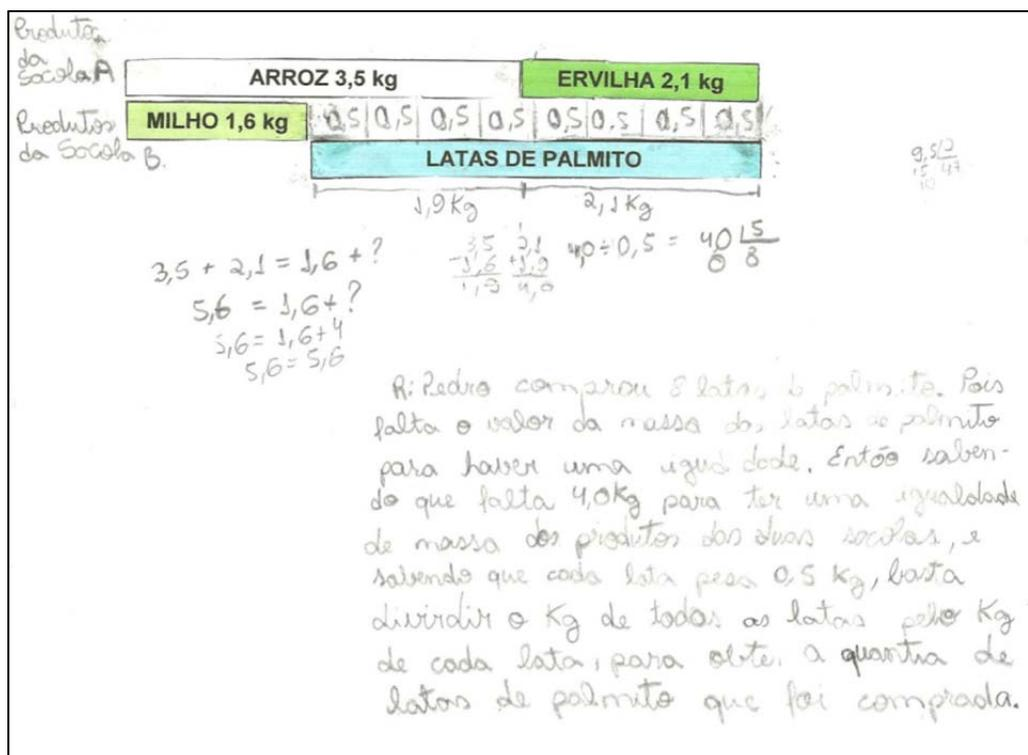 Produtos
da
Sacola A
ARROZ 3,5 kg
ERVILHA 2,1 kg
Produtos
da Sacola B.
MILHO 1,6 kg
0,5 0,5 0,5 0,5 0,5 0,5 0,5 0,5
LATAS DE PALMITO
1,9 Kg 2,1 Kg
3,5 + 2,1 = 1,6 + ?
5,6 = 1,6 + ?
5,6 = 1,6 + 4
5,6 = 5,6
3,5
- 1,6
1,9
1
2,1
+ 1,9
4,0
4,0 ÷ 0,5 = 40 5
0 8
R: Pedro comprou 8 latas d palmito. Pois
falta o valor da massa das latas de palmito
para haver uma igualdade. Então saben-
do que falta 4,0Kg para ter uma igualdade
de massa dos produtos das duas sacolas, e
sabendo que cada lata pesa 0,5 Kg, basta
divirdir o Kg de todas as latas pelo Kg
de cada lata, para obter a quantia de
latas de palmito que foi comprada.